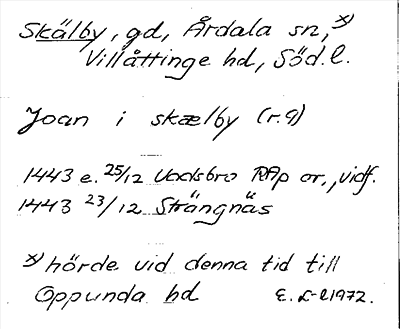 Skälby, gd, Årdala sn, x)
Villåttinge hd, Söd. l.
Joan i skælby (r. 9)
1443 e. 25/12 Vadsbro RAp or., vidf.
1443 23/12 Strängnäs
x) hörde vid denna tid till
Oppunda hd E. L-l 1972.